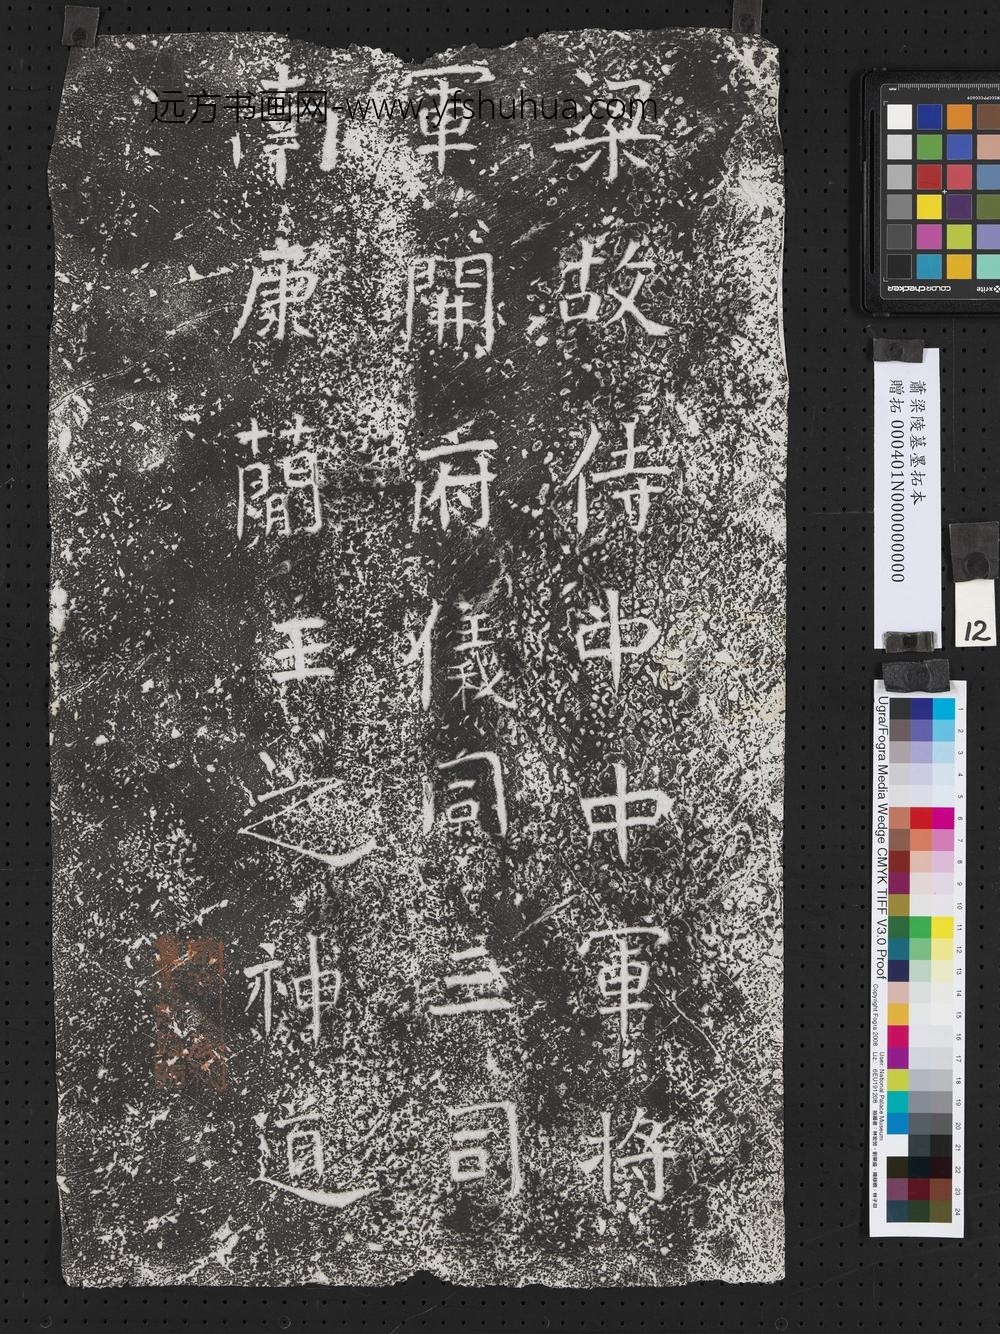 远方书画网-www.yfshuhua.com
梁故侍中中軍將
軍開府儀同三司
南康簡王之神道
蕭梁陵墓墨拓本
贈拓 000401N000000000
12
colorchecker
x-rite
Ugra/Fogra Media Wedge CMYK TIFF V3.0 Proof
Copyright Fogra 2008
User: National Palace Museum
1
2
3
4
5
6
7
8
9
10
11
12
13
14
15
16
17
18
19
20
21
22
23
24